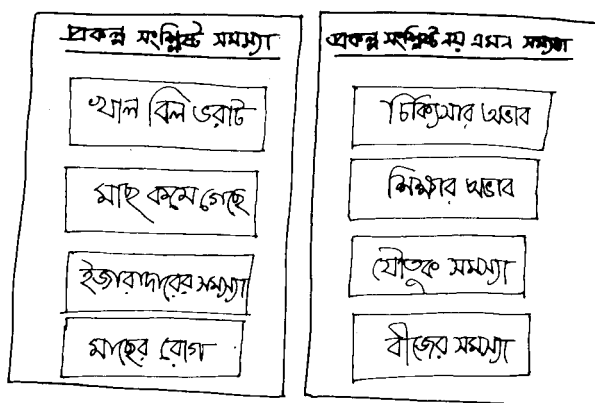 প্রকল্প সংশ্লিষ্ট সমস্যা
খাল বিল ভরাট
মাছ কমে গেছে
ইজারাদারের সমস্যা
মাছের রোগ
প্রকল্প সংশ্লিষ্ট নয় এমন সমস্যা
চিকিৎসার অভাব
শিক্ষার অভাব
যৌতুক সমস্যা
বীজের সমস্যা